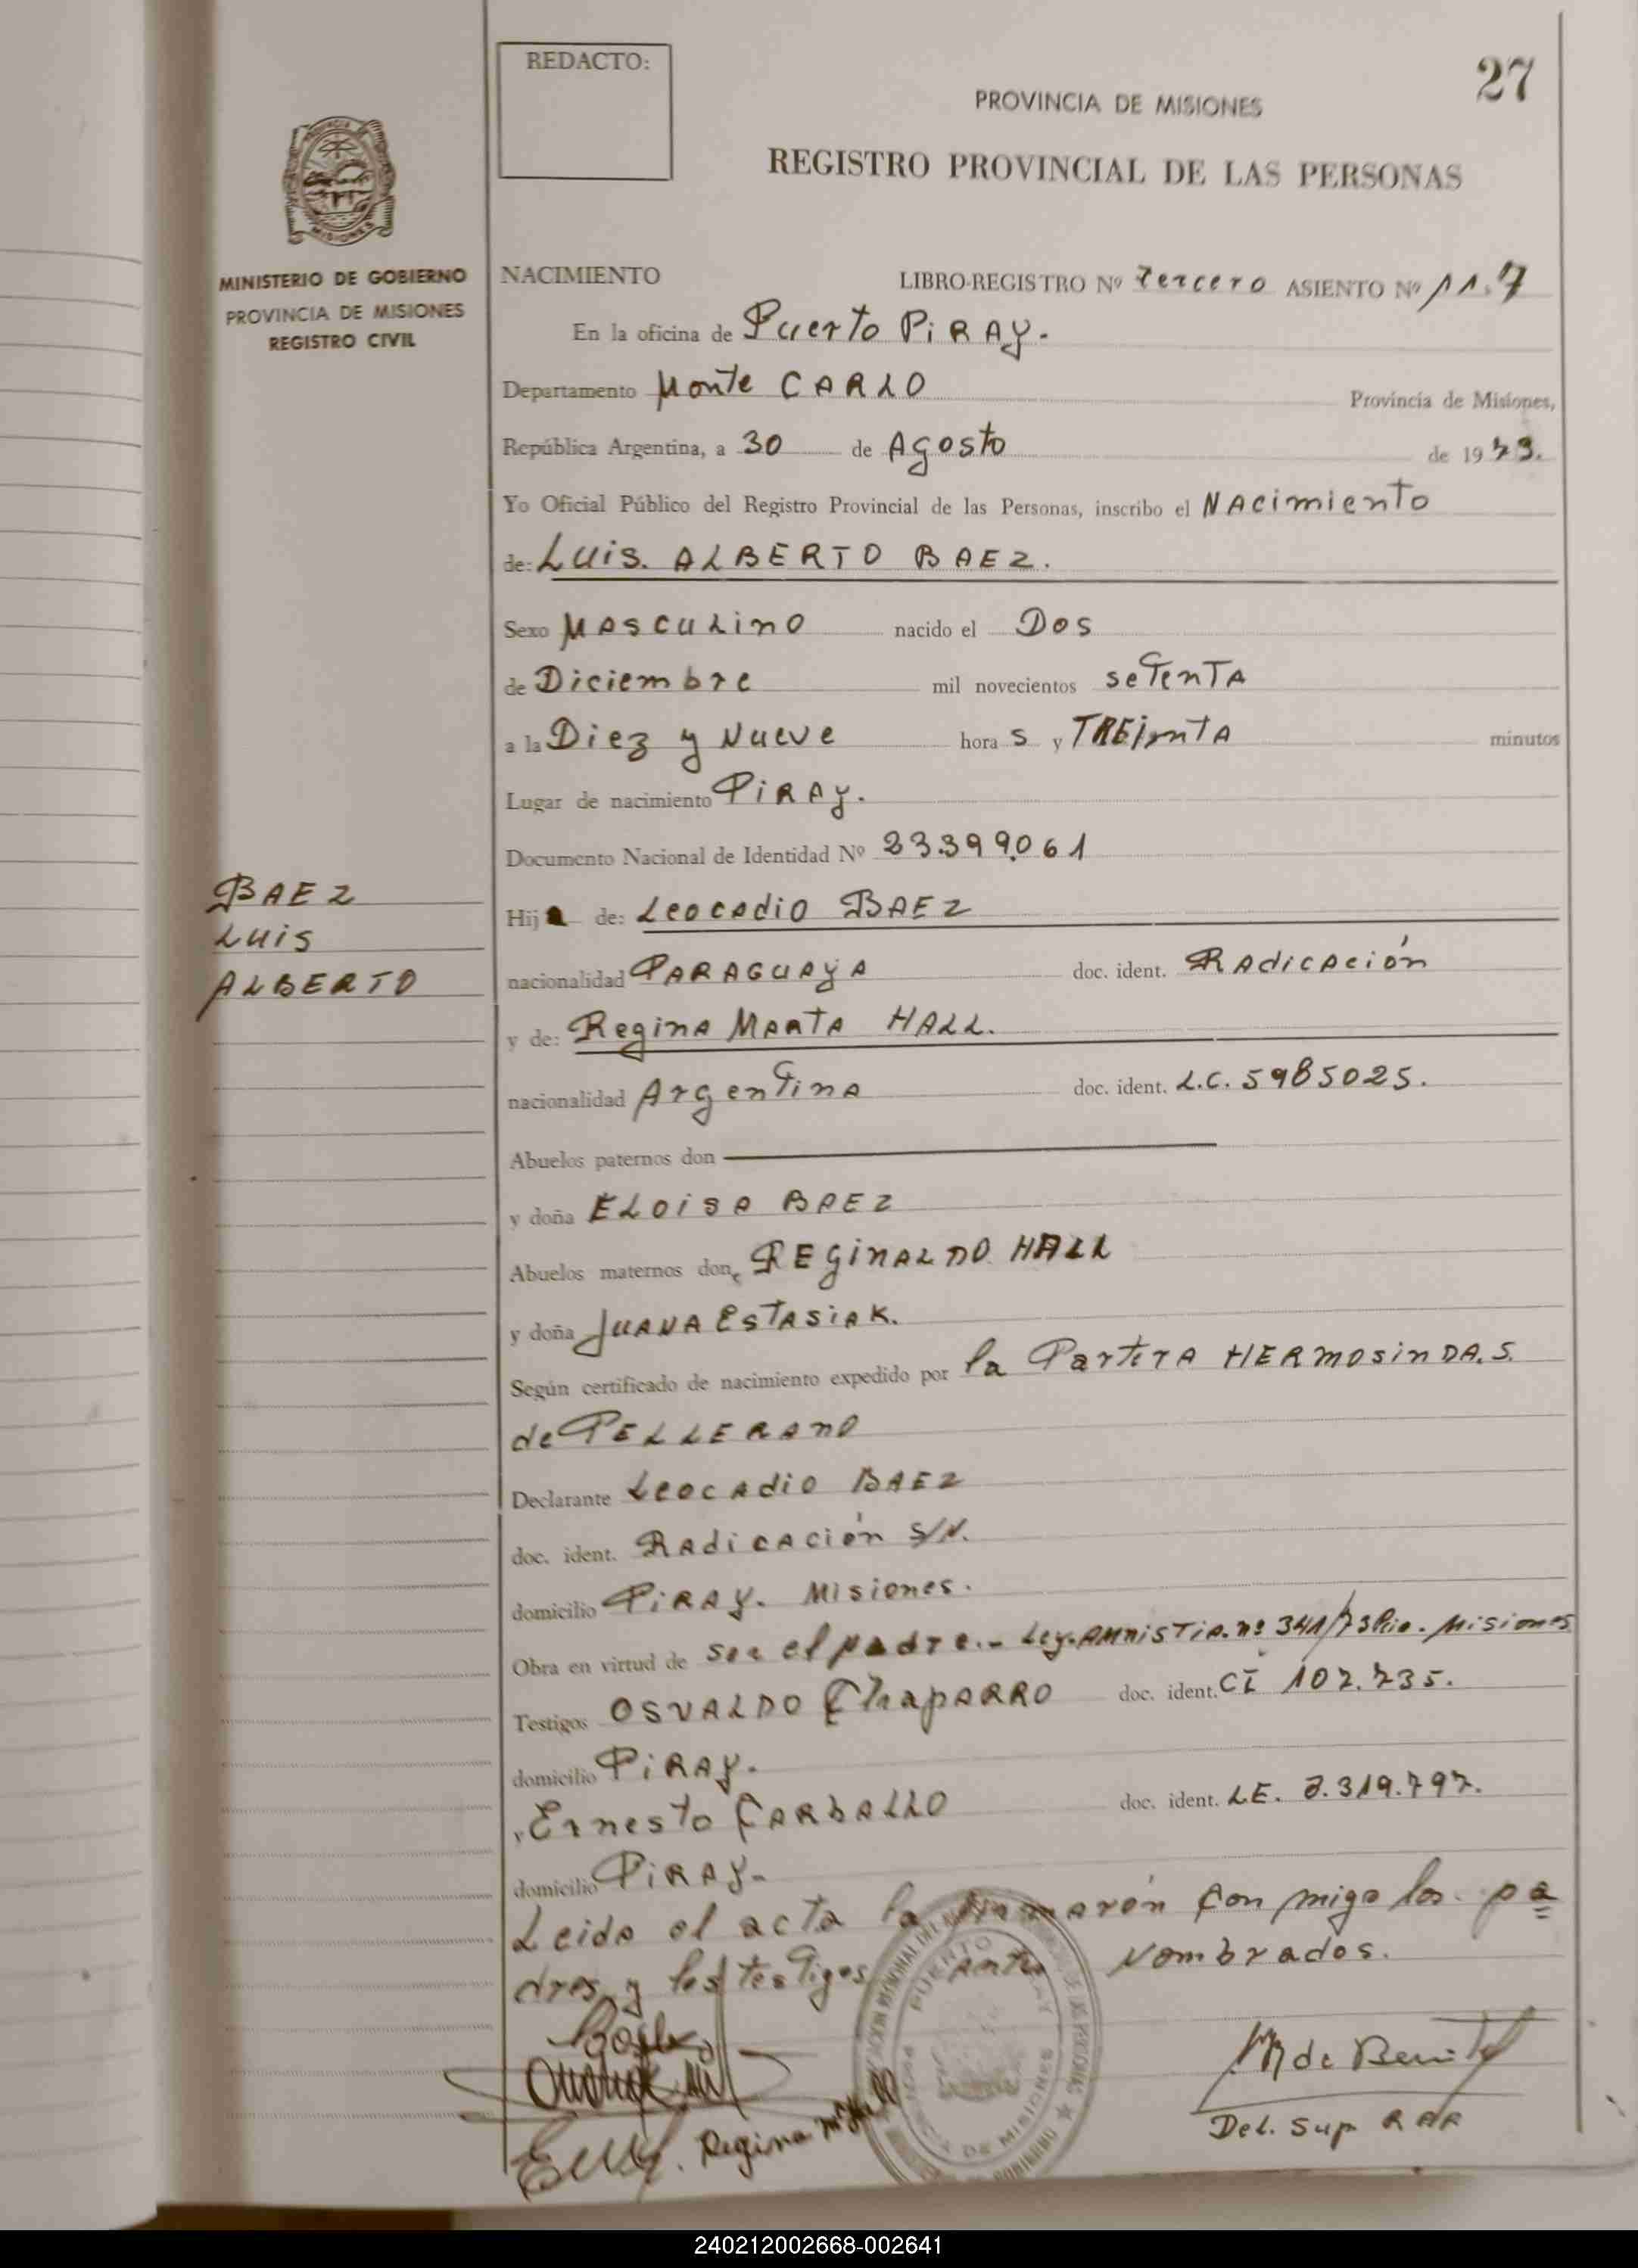 REDACTO:
27
PROVINCIA DE MISIONES
REGISTRO PROVINCIAL DE LAS PERSONAS
MISIONES
MINISTERIO DE GOBIERNO
PROVINCIA DE MISIONES
REGISTRO CIVIL
NACIMIENTO LIBRO-REGISTRO Nº Tercero ASIENTO Nº 11.7
En la oficina de Puerto PiRAY.
Departamento Monte CARLO Provincia de Misiones,
República Argentina, a 30 de Agosto de 1973.
Yo Oficial Público del Registro Provincial de las Personas, inscribo el NAcimiento
de: Luis. ALBERTO BAEZ.
Sexo MASCULino nacido el Dos
de Diciembre mil novecientos seTenTA
a la Diez y Nueve hora s y TREinTA minutos
Lugar de nacimiento PiRAY.
Documento Nacional de Identidad Nº 23.399.061
BAEZ
LUIS
ALBERTO
Hij de: Leocadio BAEZ
nacionalidad PARAGUAYA doc. ident. RAdicAción
y de: Regina MARTA HALL.
nacionalidad ArgenTina doc. ident. L.C. 5985025.
Abuelos paternos don
y doña ELOiSA BAEZ
Abuelos maternos don REGiNALDO. HALL
y doña JUANA ESTASiAK.
Según certificado de nacimiento expedido por la ParterA HERmosinDA. S.
de PELLERANO
Declarante LeocAdio BAEZ
doc. ident. RAdicAción S/N.
domicilio PiRAY. Misiones.
Obra en virtud de ser el padre.- Ley. AMNiSTiA. nº 341/73 Pcia. Misiones
Testigos OSVALDO ChapARRO doc. ident. CI 107.735.
domicilio PiRAY.
y Ernesto CARbALLO doc. ident. LE. 8.319.797.
domicilio PiRAY-
Leido el acta la firmarón con migo los pa
dres y los testigos Ante Nombrados.
PUERTO PIRAY
DE MISIONES
Regina M Hall
M de Benitez
Del. Sup RPP
240212002668-002641